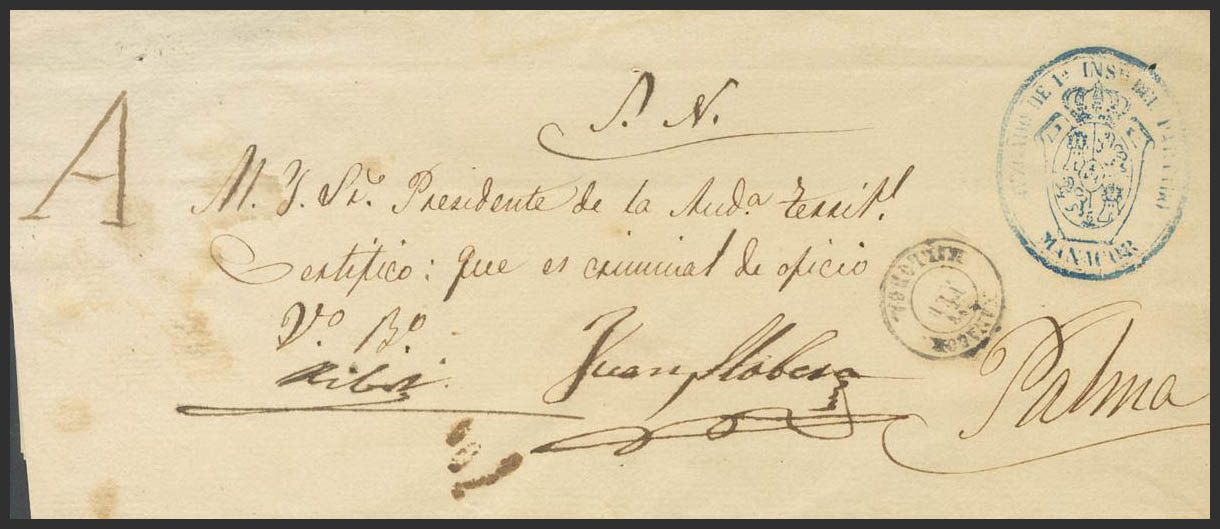 A
S. N.
M. Y. Sr. Presidente de la Aud.a territ.l
Certifico: que es criminal de oficio
V.o B.o
Juan Llobera
Palma
JUZGADO DE 1a INSa DEL PARTIDO
MANACOR
MANACOR